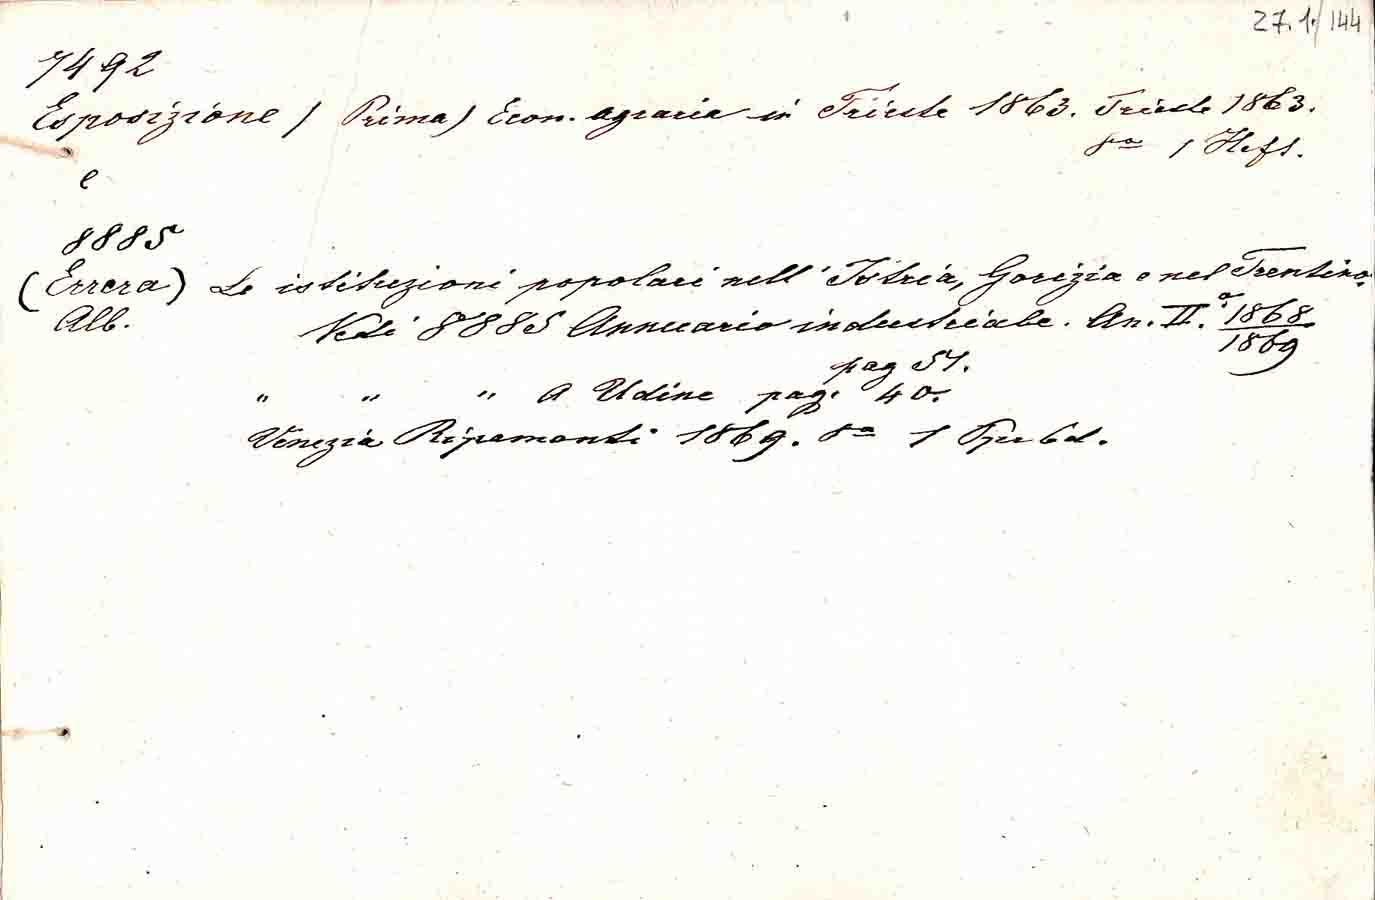 27.1./144
7492
Esposizione (Prima) Econ. agraria in Trieste 1863. Trieste 1863.
8º 1 Heft.
e
8885
(Errera) Le istituzioni popolari nell'Istria, Gorizia e nel Trentino.
Alb. Vedi 8885 Annuario industriale. An. II.º 1868/1869
pag 51.
" " " A Udine pag. 40.
Venezia Ripamonti 1869. 8º 1